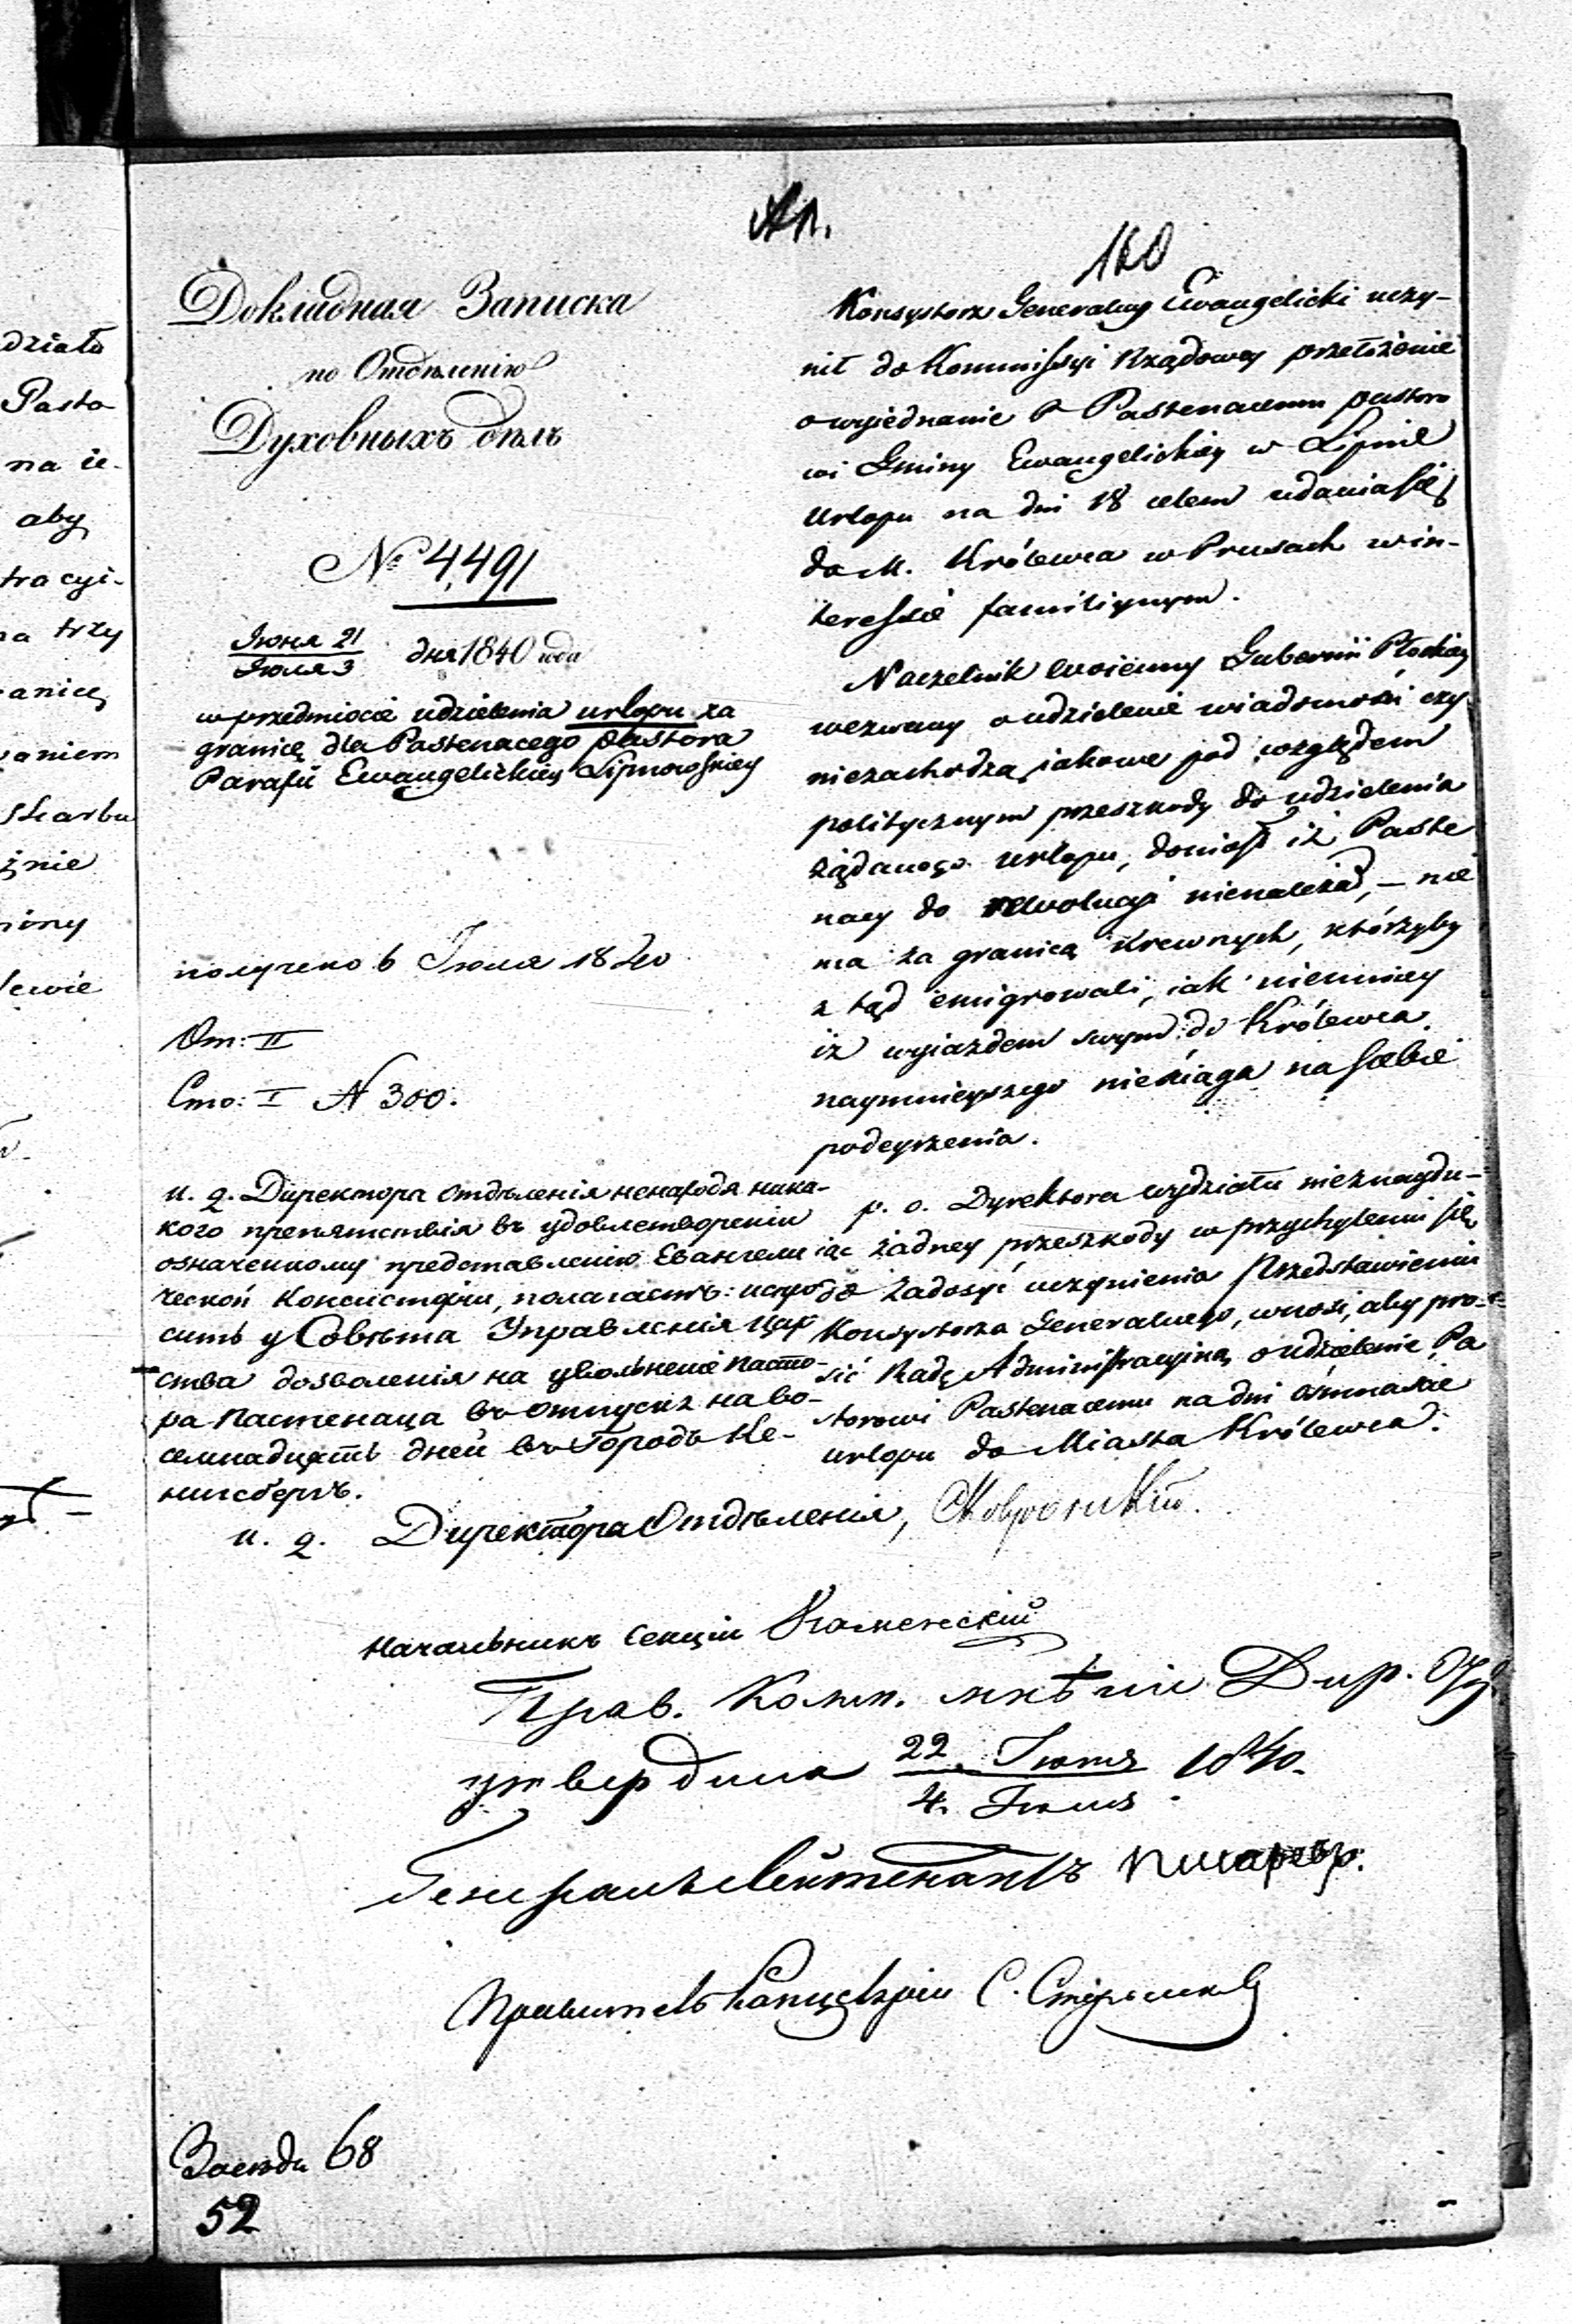 160
Докладная Записка
по Отдѣленію
Духовныхъ дѣлъ
№ 4,491
Іюня 21
Іюля 3
дня 1840 года
w przedmiocie udzielenia urlopu za
granicę dla Pastenacego pastora
Parafii Ewangelickiey Lipnowskiey
получено 6 Іюля 1840
От: II
Сто: I № 300.
Konsystorz Generalny Ewangelicki uczy-
nił do Kommissyi Rządowey przełożenie
o wyiednanie P Pastenacemu pastoro
wi Gminy Ewangelickiey w Lipnie
Urlopu na dni 18 celem udania się
do M. Królewca w Prusach w in-
teressie familiynym.
Naczelnik woienny Gubernii Płockiey
wezwany o udzielenie wiadomości czy
niezachodzą iakowe pod względem
politycznym przeszkody do udzielenia
żądanego urlopu, doniósł iż Paste
nacy do rewolucyi nienależał, – nie
ma za granicą krewnych, którzyby
z tąd emigrowali, iak niemniey
iż wyiazdem swym do Królewca
naymnieyszego nieściąga na siebie
podeyrzenia.
и. д. Директора Отдѣленія ненаходя ника-
кого препятствія въ удовлетвореніи
означенному представленію Евангели
ческой Консисторіи, полагаетъ: испро
сить у Совѣта Управленія Цар
ства дозволенія на увольненіе Пасто-
ра Пастенаца въ отпускъ на во-
семнадцать дней въ Городъ Ке-
нигсбергъ.
p. o. Dyrektora wydziału nieznaydu-
iąc żadney przeszkody w przychyleniu się
do żadosyć uczynienia Przedstawieniu
Konsystorza Generalnego, wnosi, aby pro-
sić Radę Administracyiną o udzielenie Pa
storowi Pastenacemu na dni ośmnaście
urlopu do Miasta Królewca.
и. д. Директора Отдѣленія,
Начальникъ Секціи Каменскій
Прав. Комм. мнѣніе Дир.
утвердила 22 Іюня 1840.
4. Іюля
Генералъ Лейтенантъ Писаревъ.
Правитель Канцеляріи С.
Засѣд. 68
52
działo
Pasto
na ie-
aby
tracyi-
na trzy
anicę
aniem
Skarbu
żnie
niony
lewie